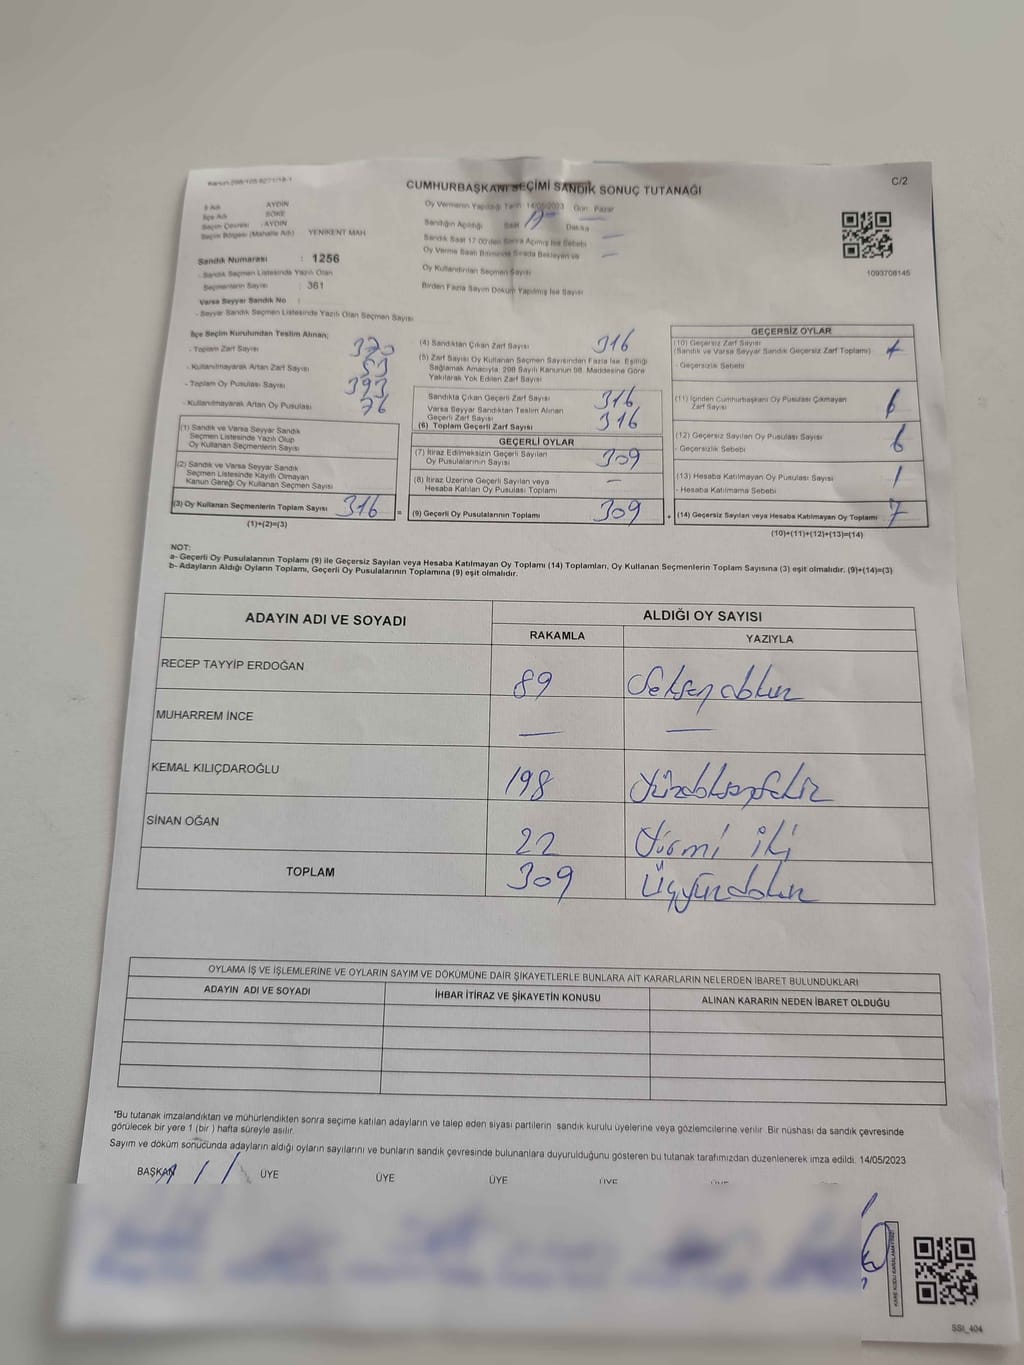 CUMHURBAŞKANI SEÇİMİ SANDIK SONUÇ TUTANAĞI
C/2
İl Adı AYDIN
İlçe Adı SÖKE
Seçim Çevresi : AYDIN
Seçim Bölgesi (Mahalle Adı) YENİKENT MAH
Sandık Numarası : 1256
- Sandık Seçmen Listesinde Yazılı Olan
Seçmenlerin Sayısı : 361
Varsa Seyyar Sandık No :
- Seyyar Sandık Seçmen Listesinde Yazılı Olan Seçmen Sayısı
Oy Vermenin Yapıldığı Tarih 14/05/2023 Gün: Pazar
Sandığın Açıldığı Saat Dakika
Sandık Saat 17:00'den Sonra Açılmış İse Sebebi
Oy Verme Saati Bitiminde Sırada Bekleyen ve
Oy Kullandırılan Seçmen Sayısı
Birden Fazla Sayım Döküm Yapılmış İse Sayısı
1093708145
İlçe Seçim Kurulundan Teslim Alınan;
- Toplam Zarf Sayısı 370
- Kullanılmayarak Artan Zarf Sayısı
- Toplam Oy Pusulası Sayısı 393
- Kullanılmayarak Artan Oy Pusulası 76
(1) Sandık ve Varsa Seyyar Sandık
Seçmen Listesinde Yazılı Olup
Oy Kullanan Seçmenlerin Sayısı
(2) Sandık ve Varsa Seyyar Sandık
Seçmen Listesinde Kayıtlı Olmayan
Kanun Gereği Oy Kullanan Seçmen Sayısı
(3) Oy Kullanan Seçmenlerin Toplam Sayısı 316
(1)+(2)=(3)
(4) Sandıktan Çıkan Zarf Sayısı 316
(5) Zarf Sayısı Oy Kullanan Seçmen Sayısından Fazla İse, Eşitliği
Sağlamak Amacıyla, 298 Sayılı Kanunun 98. Maddesine Göre
Yakılarak Yok Edilen Zarf Sayısı
Sandıkta Çıkan Geçerli Zarf Sayısı 316
Varsa Seyyar Sandıktan Teslim Alınan
Geçerli Zarf Sayısı
(6) Toplam Geçerli Zarf Sayısı 316
GEÇERLİ OYLAR
(7) İtiraz Edilmeksizin Geçerli Sayılan
Oy Pusulalarının Sayısı 309
(8) İtiraz Üzerine Geçerli Sayılan veya
Hesaba Katılan Oy Pusulası Toplamı —
= (9) Geçerli Oy Pusulalarının Toplamı 309
GEÇERSİZ OYLAR
(10) Geçersiz Zarf Sayısı
(Sandık ve Varsa Seyyar Sandık Geçersiz Zarf Toplamı)
- Geçersizlik Sebebi
(11) İçinden Cumhurbaşkanı Oy Pusulası Çıkmayan
Zarf Sayısı
(12) Geçersiz Sayılan Oy Pusulası Sayısı 6
- Geçersizlik Sebebi
(13) Hesaba Katılmayan Oy Pusulası Sayısı 1
- Hesaba Katılmama Sebebi
+ (14) Geçersiz Sayılan veya Hesaba Katılmayan Oy Toplamı 7
(10)+(11)+(12)+(13)=(14)
NOT:
a- Geçerli Oy Pusulalarının Toplamı (9) ile Geçersiz Sayılan veya Hesaba Katılmayan Oy Toplamı (14) Toplamları, Oy Kullanan Seçmenlerin Toplam Sayısına (3) eşit olmalıdır. (9)+(14)=(3)
b- Adayların Aldığı Oyların Toplamı, Geçerli Oy Pusulalarının Toplamına (9) eşit olmalıdır.
ADAYIN ADI VE SOYADI ALDIĞI OY SAYISI
RAKAMLA YAZIYLA
RECEP TAYYİP ERDOĞAN 89 Seksendokuz
MUHARREM İNCE — —
KEMAL KILIÇDAROĞLU 198 Yüzdoksansekiz
SİNAN OĞAN 22 Yirmi iki
TOPLAM 309 Üçyüzdokuz
OYLAMA İŞ VE İŞLEMLERİNE VE OYLARIN SAYIM VE DÖKÜMÜNE DAİR ŞİKAYETLERLE BUNLARA AİT KARARLARIN NELERDEN İBARET BULUNDUKLARI
ADAYIN ADI VE SOYADI İHBAR İTİRAZ VE ŞİKAYETİN KONUSU ALINAN KARARIN NEDEN İBARET OLDUĞU
"Bu tutanak imzalandıktan ve mühürlendikten sonra seçime katılan adayların ve talep eden siyasi partilerin sandık kurulu üyelerine veya gözlemcilerine verilir. Bir nüshası da sandık çevresinde
görülecek bir yere 1 (bir ) hafta süreyle asılır.
Sayım ve döküm sonucunda adayların aldığı oyların sayılarını ve bunların sandık çevresinde bulunanlara duyurulduğunu gösteren bu tutanak tarafımızdan düzenlenerek imza edildi. 14/05/2023
BAŞKAN ÜYE ÜYE ÜYE ÜYE
SSI_404